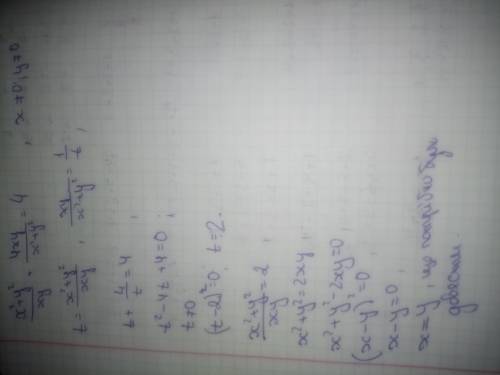 \frac{x^2+y^2}{xy} + \frac{4xy}{x^2+y^2} = 4 , x ≠ 0, y ≠ 0
t = \frac{x^2+y^2}{xy} , \frac{xy}{x^2+y^2} = \frac{1}{t} ,
t + \frac{4}{t} = 4 ,
t^2 - 4t + 4 = 0 ,
t ≠ 0
(t-2)^2 = 0 , t = 2.
\frac{x^2+y^2}{xy} = 2 ,
x^2+y^2 = 2xy ,
x^2+y^2-2xy = 0 ,
(x-y)^2 = 0 ,
x-y = 0 ,
x = y , що потрібно було
довести.